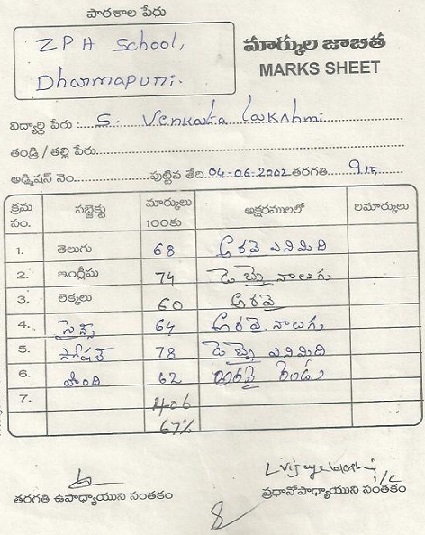 పాఠశాల పేరు
Z P H School,
Dharmapuri.
మార్కుల జాబితా
MARKS SHEET
విద్యార్థి పేరు : S. Venkata Lakshmi
తండ్రి / తల్లి పేరు
అడ్మిషన్ నెం. పుట్టిన తేది 04-06-2002 తరగతి 9th
క్రమ సం. సబ్జెక్టు మార్కులు 100కు అక్షరములలో రిమార్కులు
1. తెలుగు 68 అరవై ఎనిమిది
2. ఇంగ్లీషు 74 డెబ్బై నాలుగు
3. లెక్కలు 60 అరవై
4. సైన్స్ 64 అరవై నాలుగు
5. సోషల్ 78 డెబ్బై ఎనిమిది
6. హింది 62 అరవై రెండు
7. 406
67%
తరగతి ఉపాధ్యాయుని సంతకం
ప్రధానోపాధ్యాయుని సంతకం
8